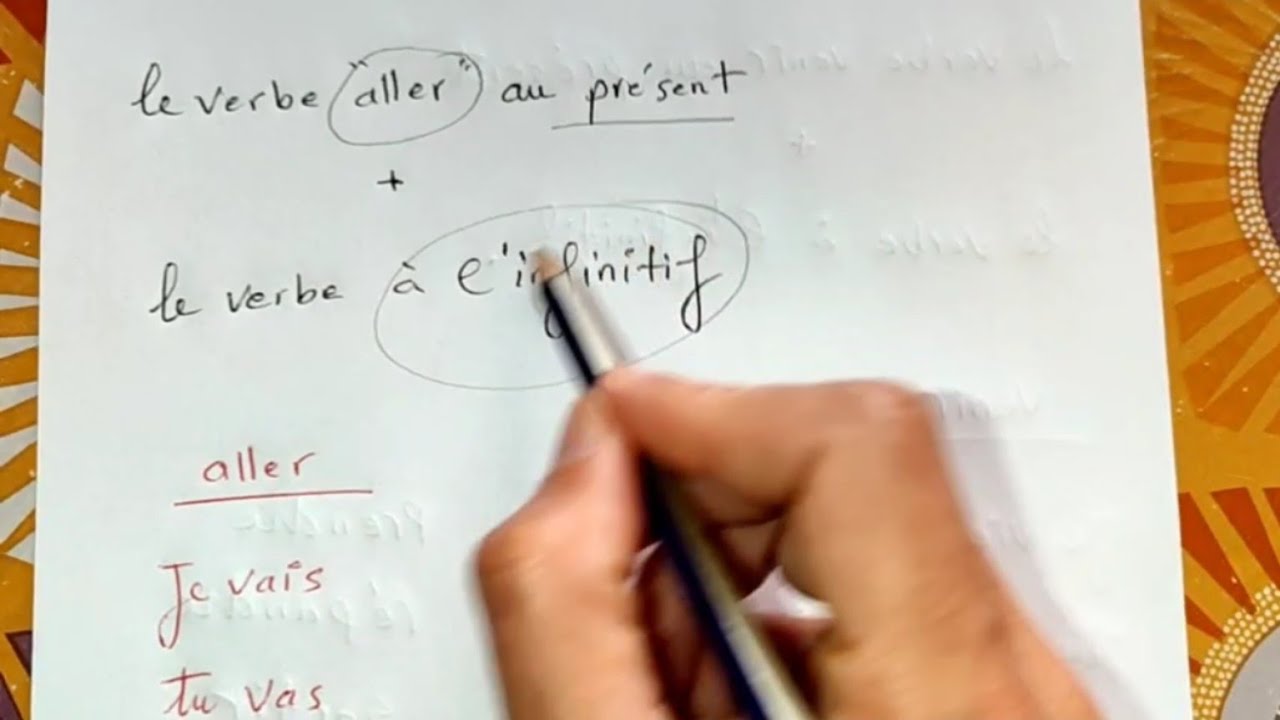 le verbe "aller" au présent
+
le verbe à l'infinitif
aller
Je vais
tu vas